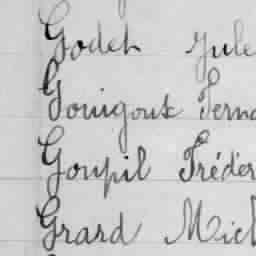 Godeh Jule
Gouigoux Ferna
Goupil Fréder
Grard Mich